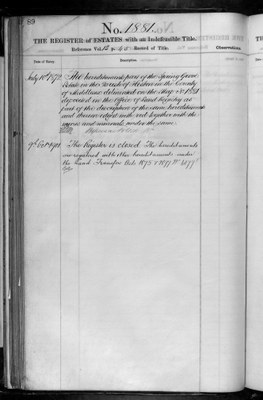 89
No. 1881.
THE REGISTER of ESTATES with an Indefeasible Title.
Reference Vol. 12 p. Record of Title.
Date of Entry.
Description.
Observations.
July 10th 1872
The hereditaments part of the Spring Grove
Estate in the Parish of Heston in the County
of Middlesex delineated on the Map No. 1881
deposited in the office of Land Registry as
part of the description of the same hereditaments
and thereon edged with red together with the
mines and minerals under the same.
The Register is closed. The hereditaments
are registered with other hereditaments under
the Land Transfer Acts 1875 & 1897